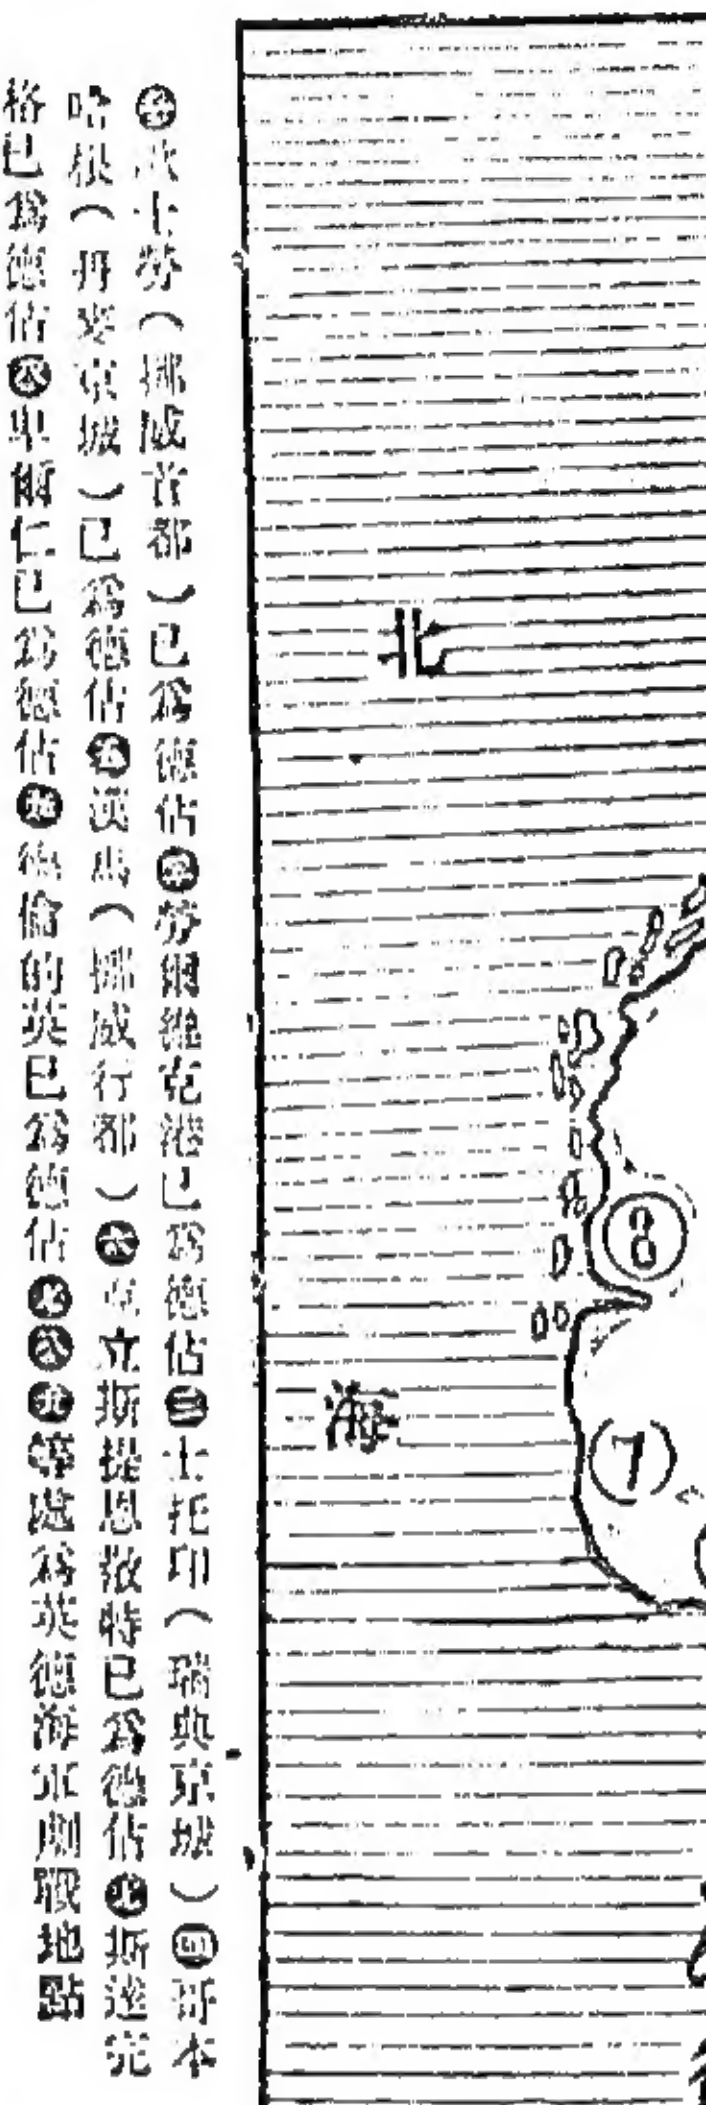 士勞（挪威首都）已爲德佔 勞爾維克港已爲德佔㊂士托印（瑞典京城）㊃哥本
哈根（丹麥京城）已爲德佔㊄漢馬（挪威行都）㊅立斯提恩散特已爲德佔㊆斯達完
格已爲德佔㊇卑爾仁已爲德佔㊈倫的英已爲德佔㊆㊇㊈等處爲英德海軍劇戰地點
北
海
8
7